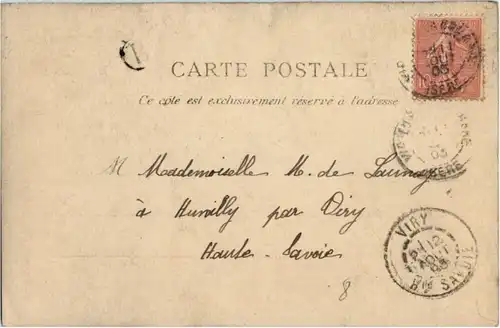 CARTE POSTALE
Ce côté est exclusivement réservé à l'adresse
M Mademoiselle M. de Launay
à Humilly par Viry
Haute-Savoie
8
ISÈRE
ISÈRE
VIRY
12
AOUT
Hte SAVOIE